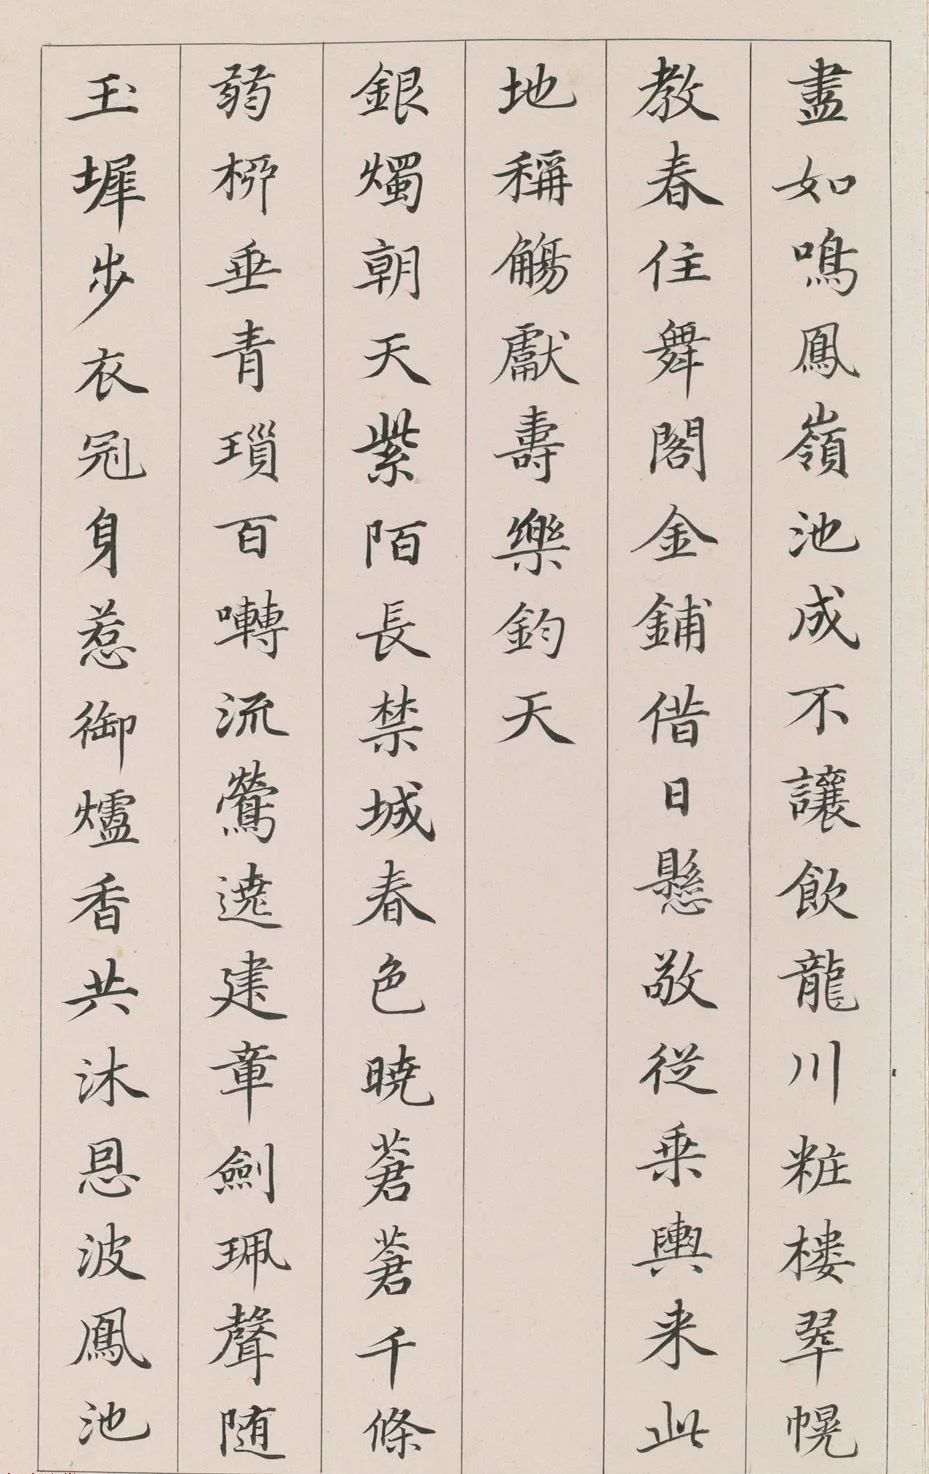 盡如鳴鳳嶺池成不讓飲龍川粧樓翠幌
教春住舞閣金鋪借日懸敬從乗輿来此
地稱觴獻壽樂鈞天
銀燭朝天紫陌長禁城春色暁蒼蒼千條
弱栁垂青瑣百囀流鶯遶建章劍珮聲随
玉墀步衣冠身惹御爐香共沐恩波鳳池